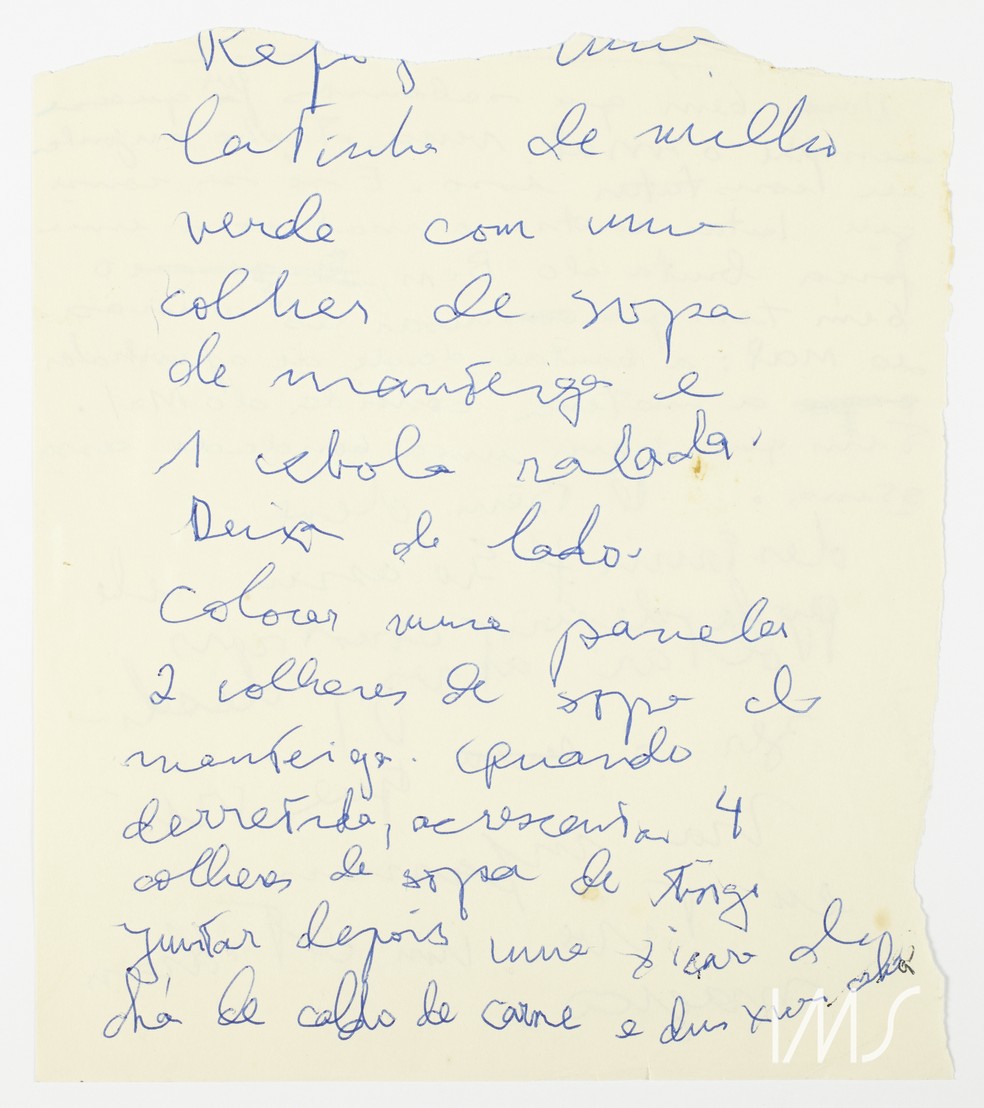 uma
latinha de milho
verde com uma
colher de sopa
de manteiga e
1 cebola ralada.
Deixa de lado.
Colocar numa panela
2 colheres de sopa de
manteiga. Quando
derretida, acrescentar 4
colheres de sopa de
Juntar depois uma xicara de
chá de caldo de carne e duas
IMS